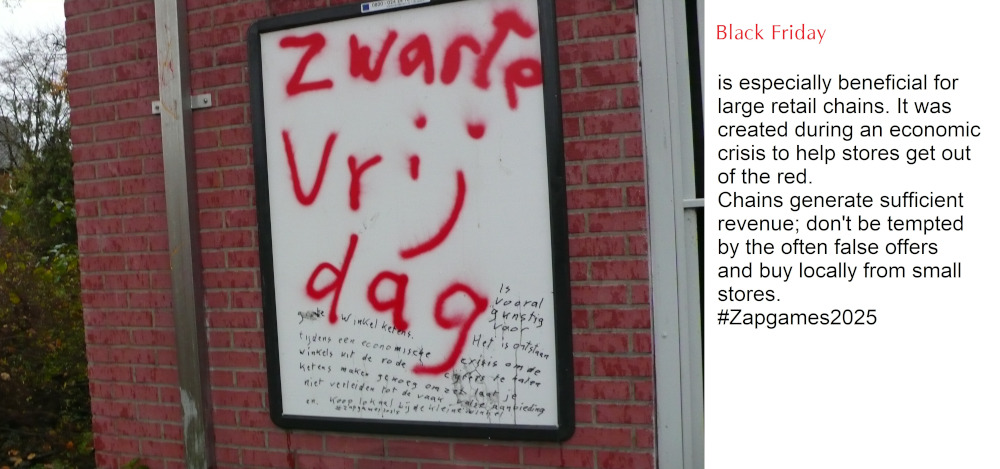 Zwarte
Vrij
dag
is
vooral
gunstig
voor
grote winkelketens.
Het is ontstaan
tijdens een economische crisis om de
winkels uit de rode cijfers te halen
ketens maken genoeg omzet laat je
niet verleiden tot de vaak valse aanbieding
en. Koop lokaal bij de kleine winkel
#zapgames2025
Black Friday
is especially beneficial for
large retail chains. It was
created during an economic
crisis to help stores get out
of the red.
Chains generate sufficient
revenue; don't be tempted
by the often false offers
and buy locally from small
stores.
#Zapgames2025